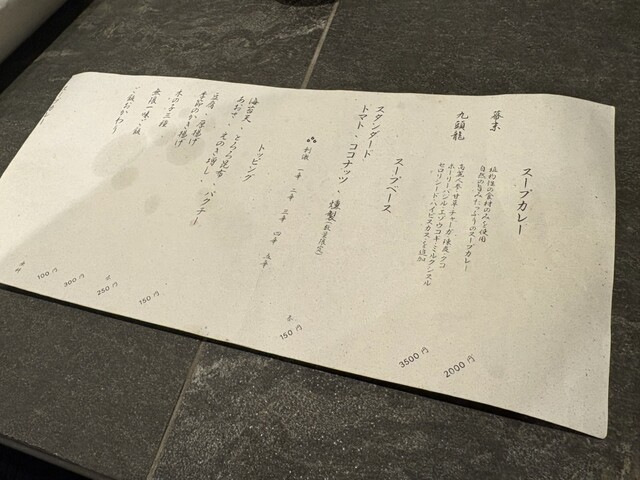 スープカレー
幕末
植物性の食材のみを使用
自然の旨みたっぷりのスープカレー
2000円
九頭龍
高麗人参・甘草・チャーガ・陳皮・クコ
ホーリーバジル・エゾウコギ・ミルクシスル
セロリシード・ハイビスカスを追加
3500円
スープベース
スタンダード
トマト、ココナッツ、燻製(数量限定)
各 150円
刺激 一辛 二辛 三辛 四辛 五辛
トッピング
海苔天、とろろ昆布
あおさ、きのこ増し、パクチー
150円
豆腐、厚揚げ
季節のかき揚げ
各 250円
木の子三種
200円
無限一味
100円
ご飯おかわり